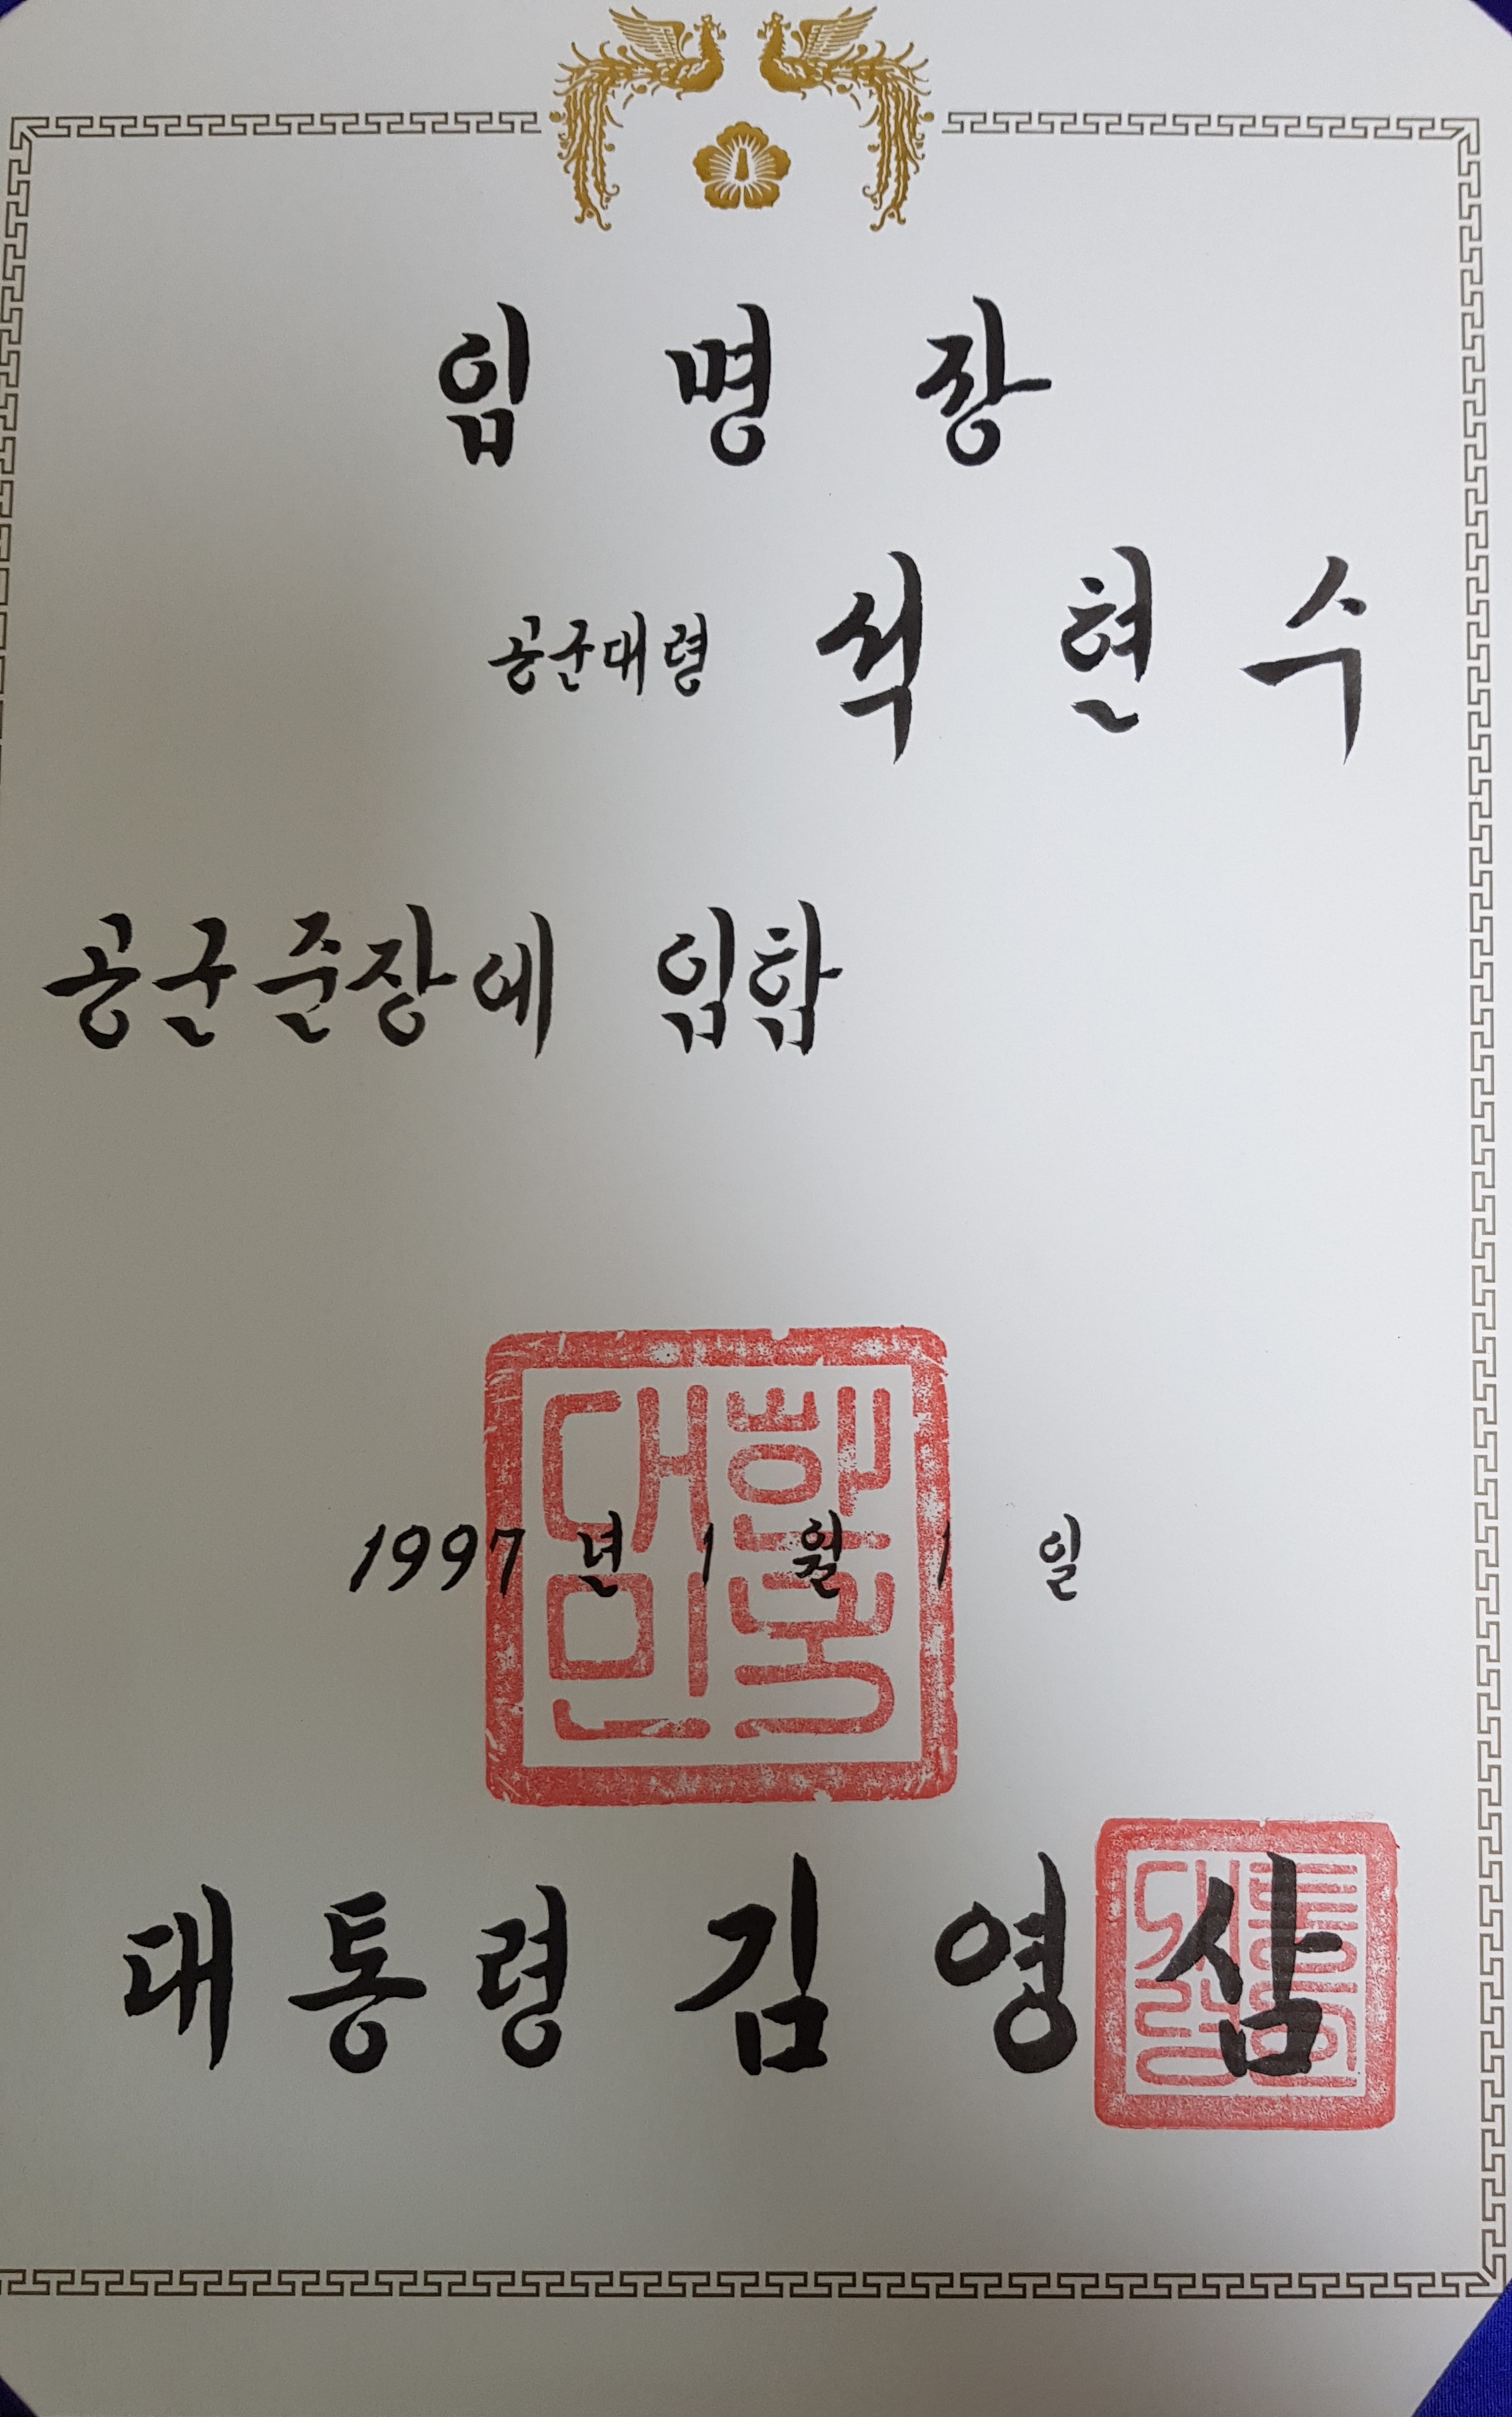 임 명 장
공군대령 석 현 수
공군준장에 임함
1997 년 1 월 1 일
대한민국
대통령 김 영 삼